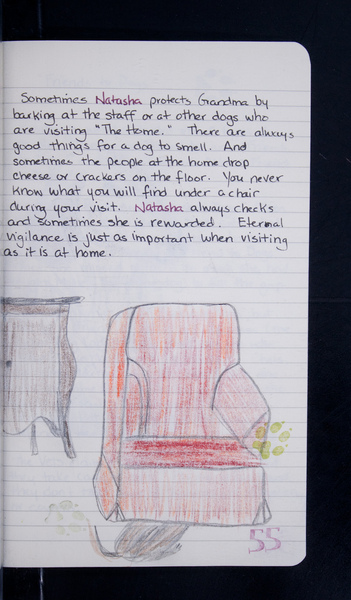 Sometimes Natasha protects Grandma by
barking at the staff or at other dogs who
are visiting "The Home." There are always
good things for a dog to smell. And
sometimes the people at the home drop
cheese or crackers on the floor. You never
know what you will find under a chair
during your visit. Natasha always checks
and sometimes she is rewarded. Eternal
vigilance is just as important when visiting
as it is at home.
55